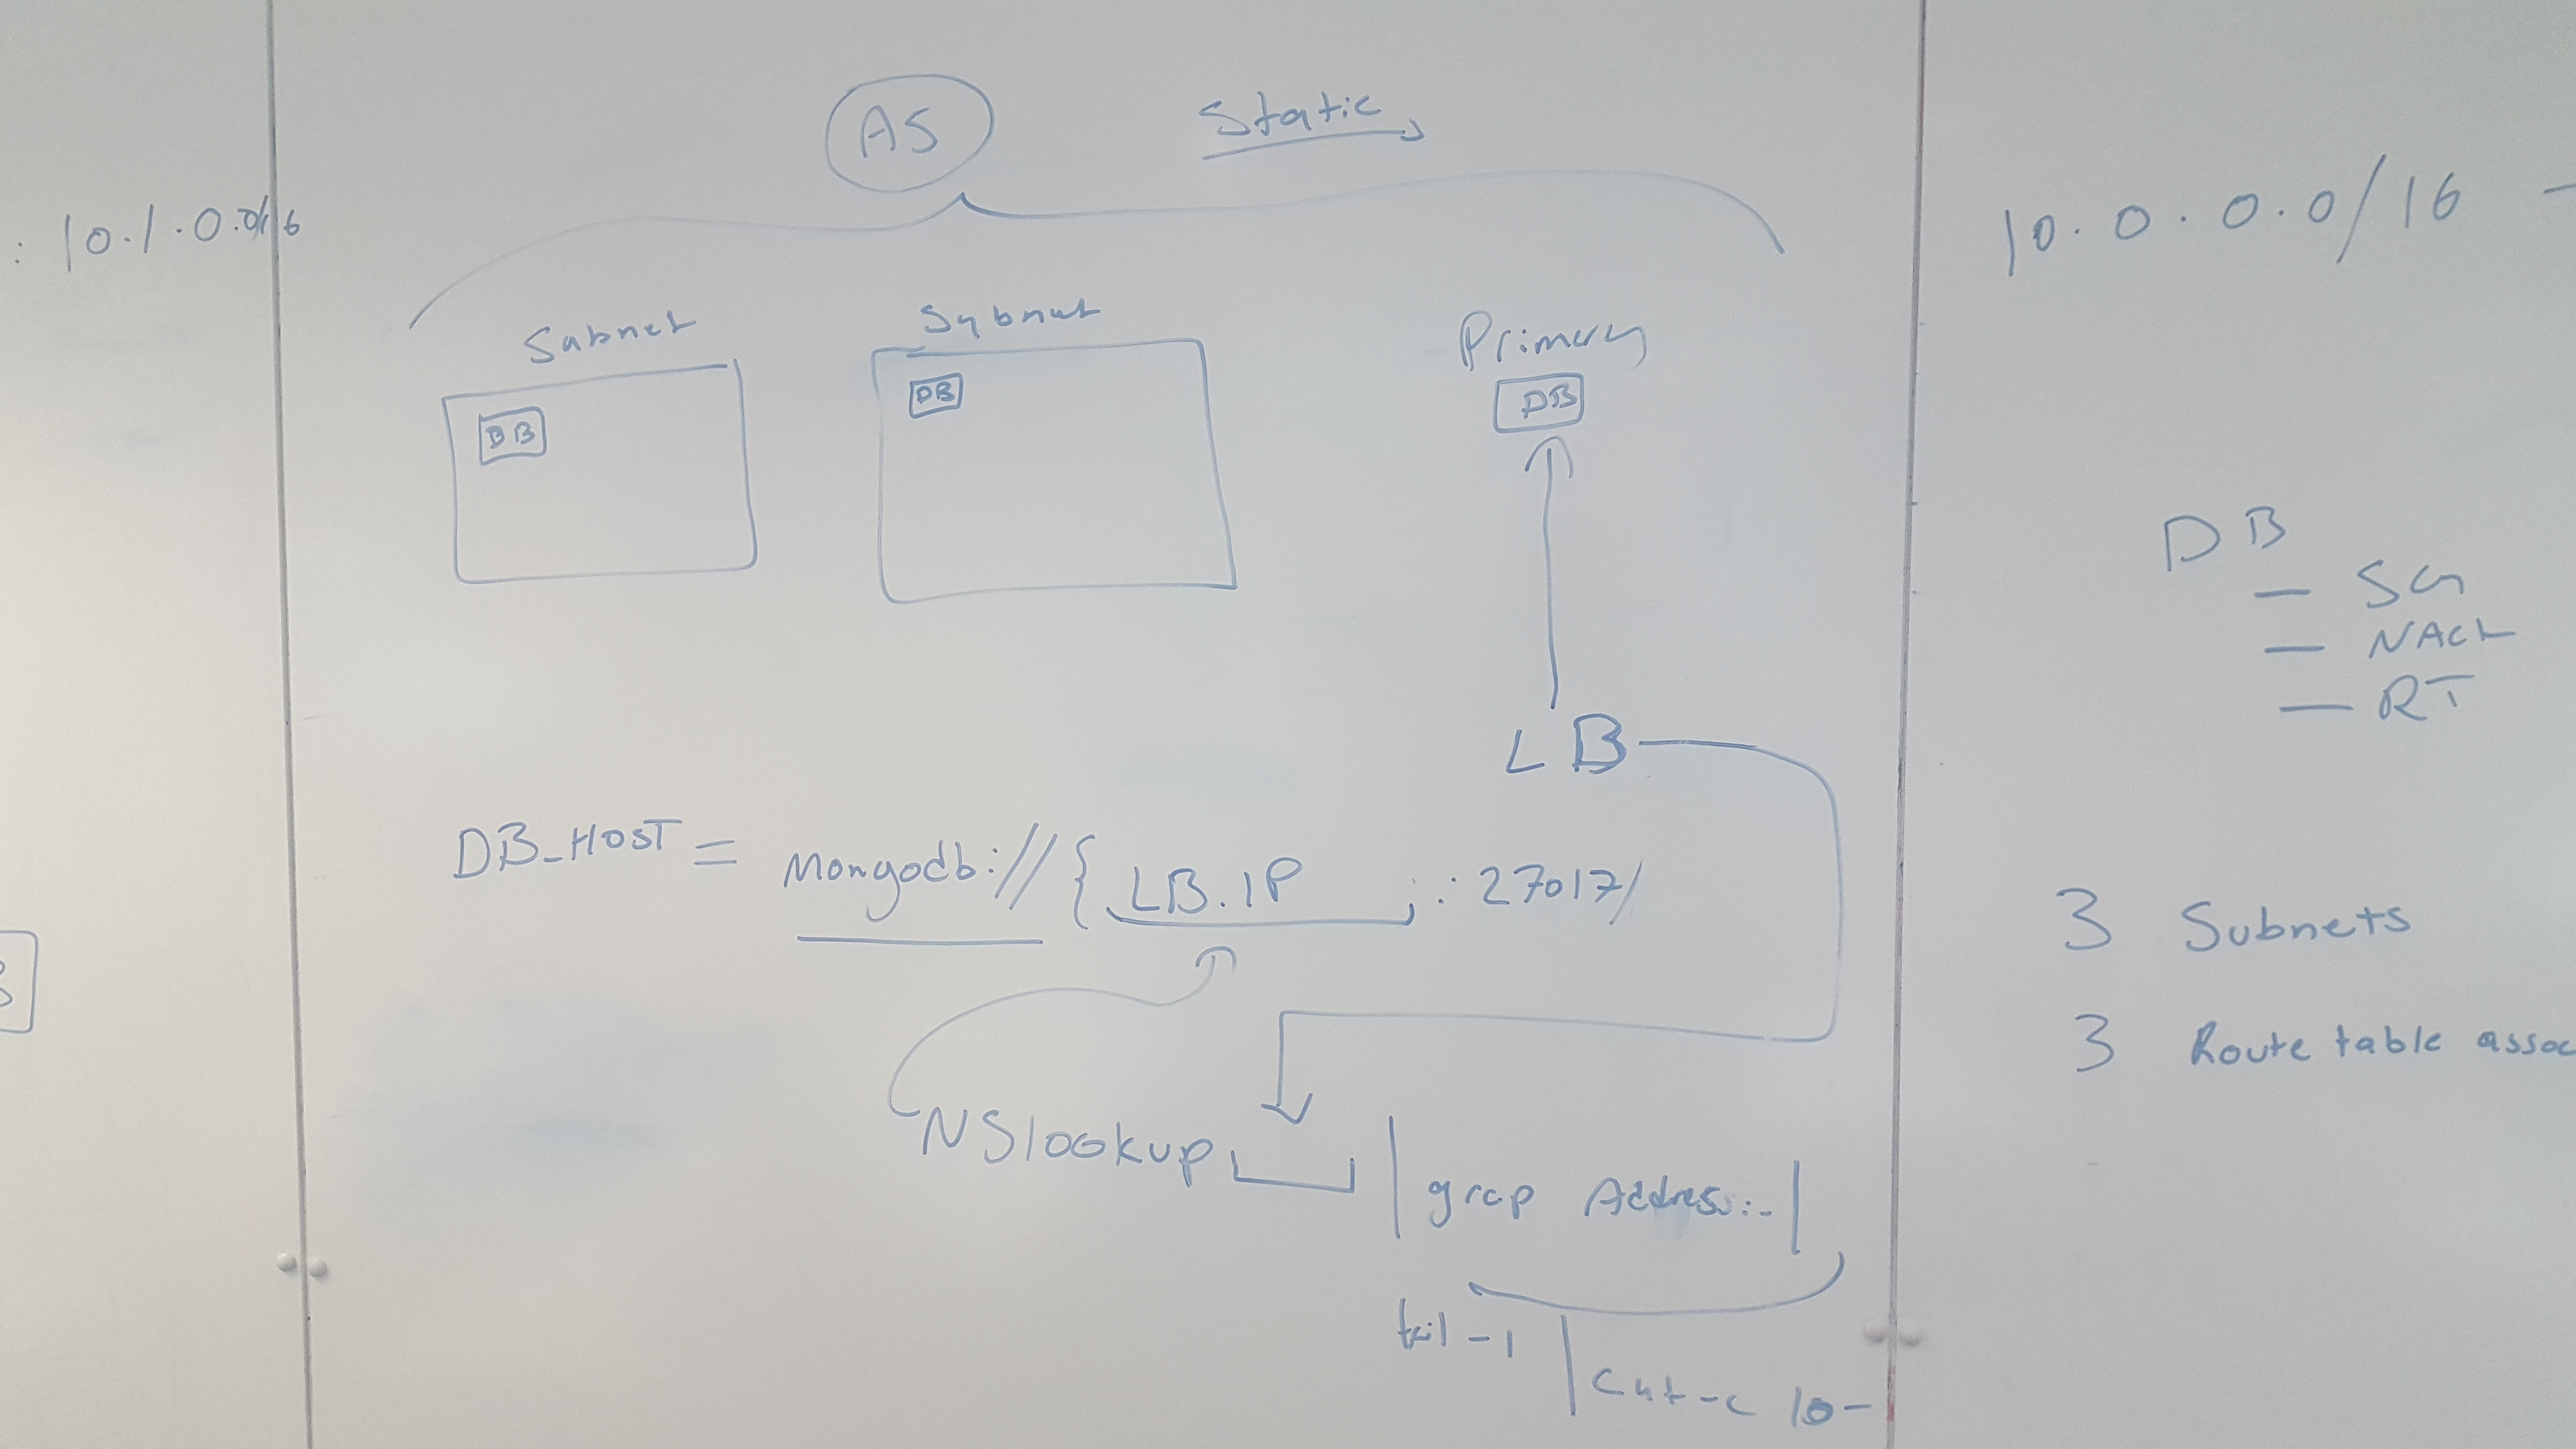 : 10.1.0.0/16
AS
Static
Subnet
DB
Subnet
DB
Primary
DB
LB
DB_HOST = Mongodb://{LB.IP }:27017/
NSlookup | grep Address: |
tail -1 | cut -c 10-
10.0.0.0/16 -
DB
- SG
- NACL
- RT
3 Subnets
3 Route table assoc